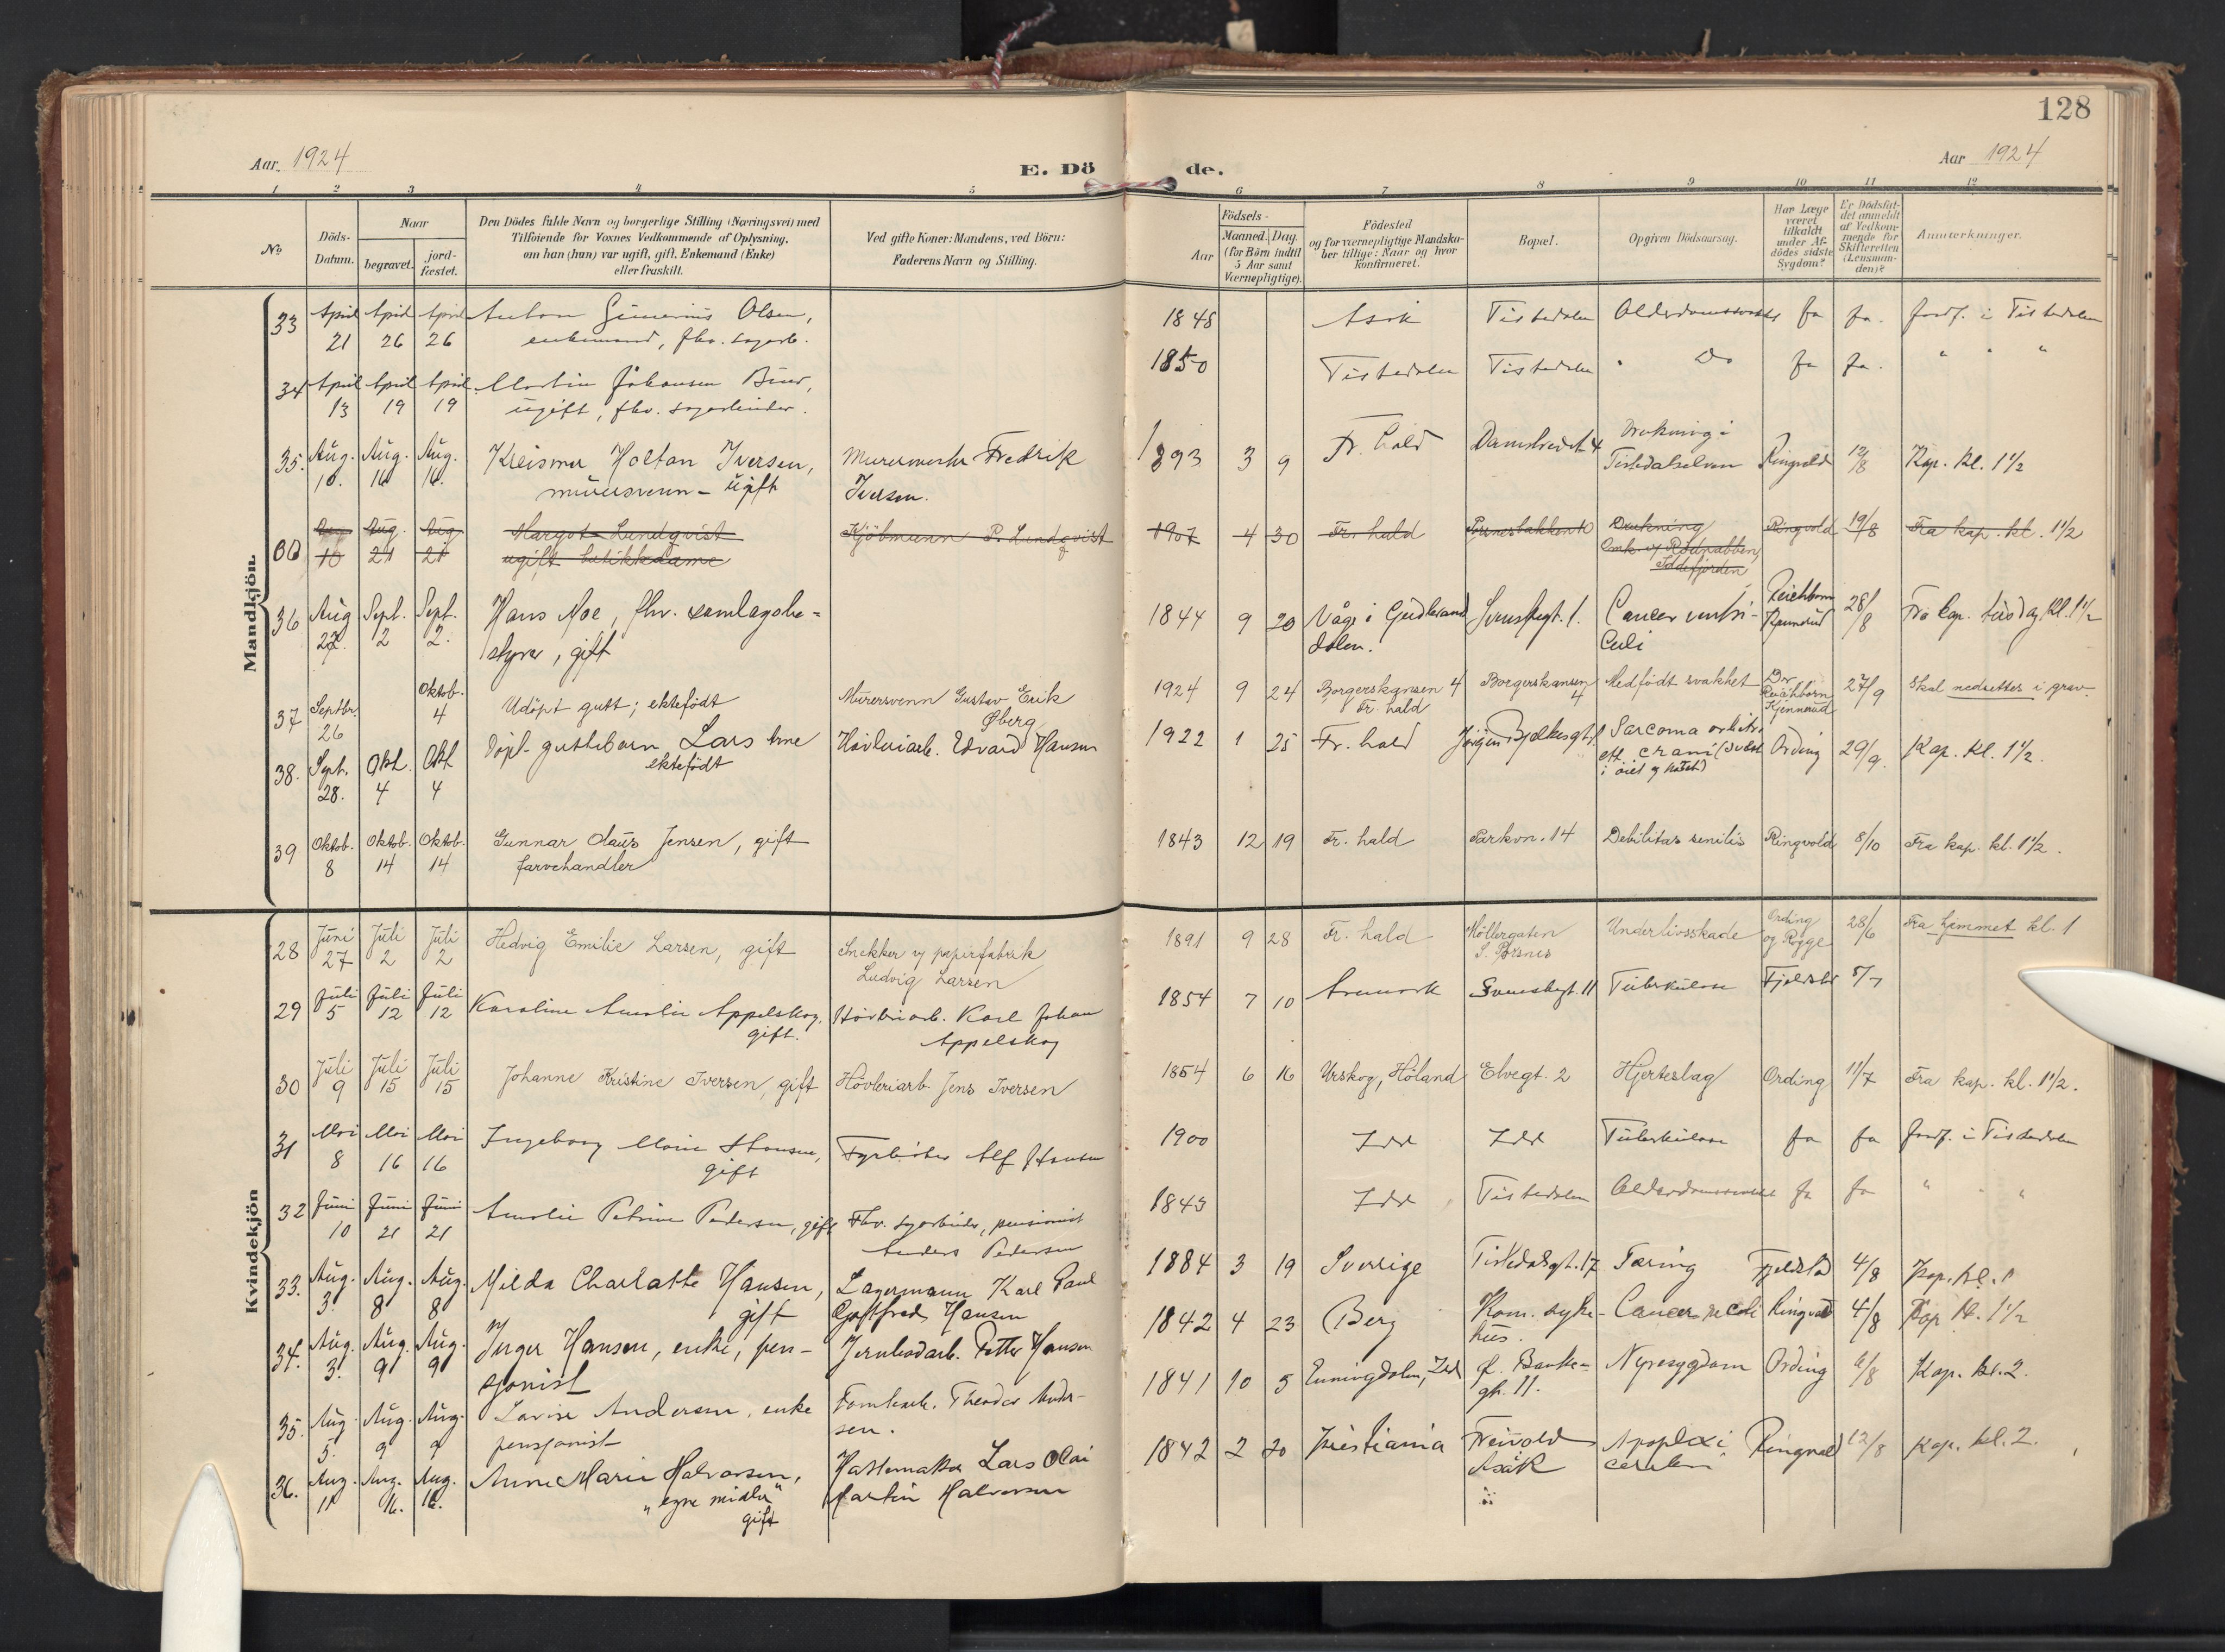 128
Aar 1924
E. Dö
de.
Aar 1924
1 2 3 4 5 6 7 8 9 10 11 12
No
Döds-
Datum.
Naar
begravet.
jord-
fæstet.
Den Dödes fulde Navn og borgerlige Stilling (Næringsvei) med
Tilföiende for Voxnes Vedkommende af Oplysning,
om han (hun) var ugift, gift, Enkemand (Enke)
eller fraskilt.
Ved gifte Koner: Mandens, ved Börn:
Faderens Navn og Stilling.
Födsels-
Aar
Maaned. Dag.
(for Börn indtil
5 Aar samt
Værnepligtige).
Födested
og for værnepligtige Mandska-
ber tillige: Naar og hvor
konfirmeret.
Bopæl.
Opgiven Dödsaarsag.
Har Læge
været
tilkaldt
under Af-
dödes sidste
Sygdom?
Er Dödsfal-
det anmeldt
af Vedkom-
mende for
Skifteretten
(Lensman-
den)?
Anmærkninger.
Mandkjön.
33 April 21 April 26 April 26 Anton Olsen,
enkemand, fhv.
1848 Asak Tistedalen ja ja. Jordf. i Tistedalen
34 April 13 April 19 April 19 Martin Johansen
ugift, fhv.
1850 Tistedalen Tistedalen " Do ja ja. " " "
35. Aug. 10. Aug. 16 Aug. 16. Kreismer Holtan Iversen,
mursvenn - ugift
Murermester Fredrik
Iversen.
1893 3 9 Fr. hald Damstredet 4 Drukning i
Tistedalselven Ringvold 12/8 Kap. kl. 1 1/2
Aug. 21 Aug. 21 Margot Lundqvist
ugift butikkdame
Kjöbmann P. Lindqvist
1907 4 30 Fr. hald Drukning
Rödnabben,
Iddefjorden
Ringvold 19/8 Fra kap. kl. 1 1/2
36 Aug 27. Sept. 2 Sept. 2. Hans Moe, fhv. samlagsbe-
styrer, gift
1844 9 20 Vågå i Gudbrands
dalen. Svenskegt. 1. Cancer ventri-
culi Reichborn
Kjennerud 28/8 Fra kap. tirsdag kl. 1 1/2
37 Septbr. 26 Oktob. 4 Udöpt gutt; ektefödt
Murersvenn Gustav Erik
Öberg
1924 9 24 Borgerskansen 4
Fr. hald Borgerskansen
4 Medfödt svakhet Dr.
Reichborn
Kjennerud 27/9 Skal nedsettes i grav.
38. Sept. 28. Okt. 4 Okt 4 Döpt guttebarn Lars Arne
ektefödt
Høvleriarb. Edvard Hansen
1922 1 25 Fr. hald Jörgen Bjelkesgt. 1 Sarcoma orbita
ett. crani (svulst
i öiet og hodet) Ording 29/9. Kap. kl. 1 1/2.
39 Oktob. 8 Oktob. 14 Oktob. 14 Gunnar Olaus Jensen, gift
farvehandler
1843 12 19 Fr. hald Parkvn. 14 Debilitas senilis Ringvold 8/10 Fra kap. kl. 1 1/2.
Kvindekjön
28 Juni 27 Juli 2 Juli 2 Hedvig Emilie Larsen, gift
Snekker v/ papirfabrik
Ludvig Larsen
1891 9 28 Fr. hald Möllergaten
S. Örsnes Underlivsskade Ording
og Rygge 28/6 Fra hjemmet kl. 1
29 Juli 5 Juli 12 Juli 12 Karoline Amalie Appelskog,
gift.
Høvleriarb. Karl Johan
Appelskog
1854 7 10 Aremark Svenskegt. 11 Tuberkulose Fjeldstad 5/7
30 Juli 9 Juli 15 Juli 15 Johanne Kristine Iversen, gift
Hövleriarb. Jens Iversen
1854 6 16 Urskog, Höland Elvegt. 2 Hjerteslag Ording 11/7 Fra kap. kl. 1 1/2.
31 Mai 8 Mai 16 Mai 16 Ingeborg Marie Hansen,
gift
Fyrböter Alf Hansen
1900 Idd Idd Tuberkulose ja ja Jordf. i Tistedalen
32 Juni 10 Juni 21 Juni 21 Amalie Petrine Pedersen, gift
Fhv. pensionist
Anders Pedersen
1843 Idd Tistedalen Alderdomssvakhet ja ja " " "
33. Aug. 3. Aug. 8 Aug. 8 Milda Charlotte Hansen,
gift
Lagermann Karl Paul
Gottfred Hansen
1884 3 19 Sverige Tistedalsgt. 17 Tæring Fjeldstad 4/8 Kap. kl. 1
34. Aug. 3. Aug. 9 Aug. 9 Inger Hansen, enke, pen-
sjonist
Petter Hansen
1842 4 23 Berg Kom. syke-
hus. Cancer Ringvold 4/8 Kap kl. 1 1/2
35. Aug. 5. Aug. 9 Aug. 9 Lovise Andersen, enke
pensjonist
Theodor Ander-
sen.
1841 10 5 Enningdalen, Idd
gt. 11. Nyresygdom Ording 6/8 Kap. kl. 2.
36. Aug. 11 Aug. 16. Aug. 16. Anne Marie Halvorsen,
"egne midler"
gift
Hattemaker Lars Olai
Martin Halvorsen
1842 2 20 Kristiania Freivold
Asak Apoplexi
cerebri Ringvold 12/8 Kap. kl. 2.